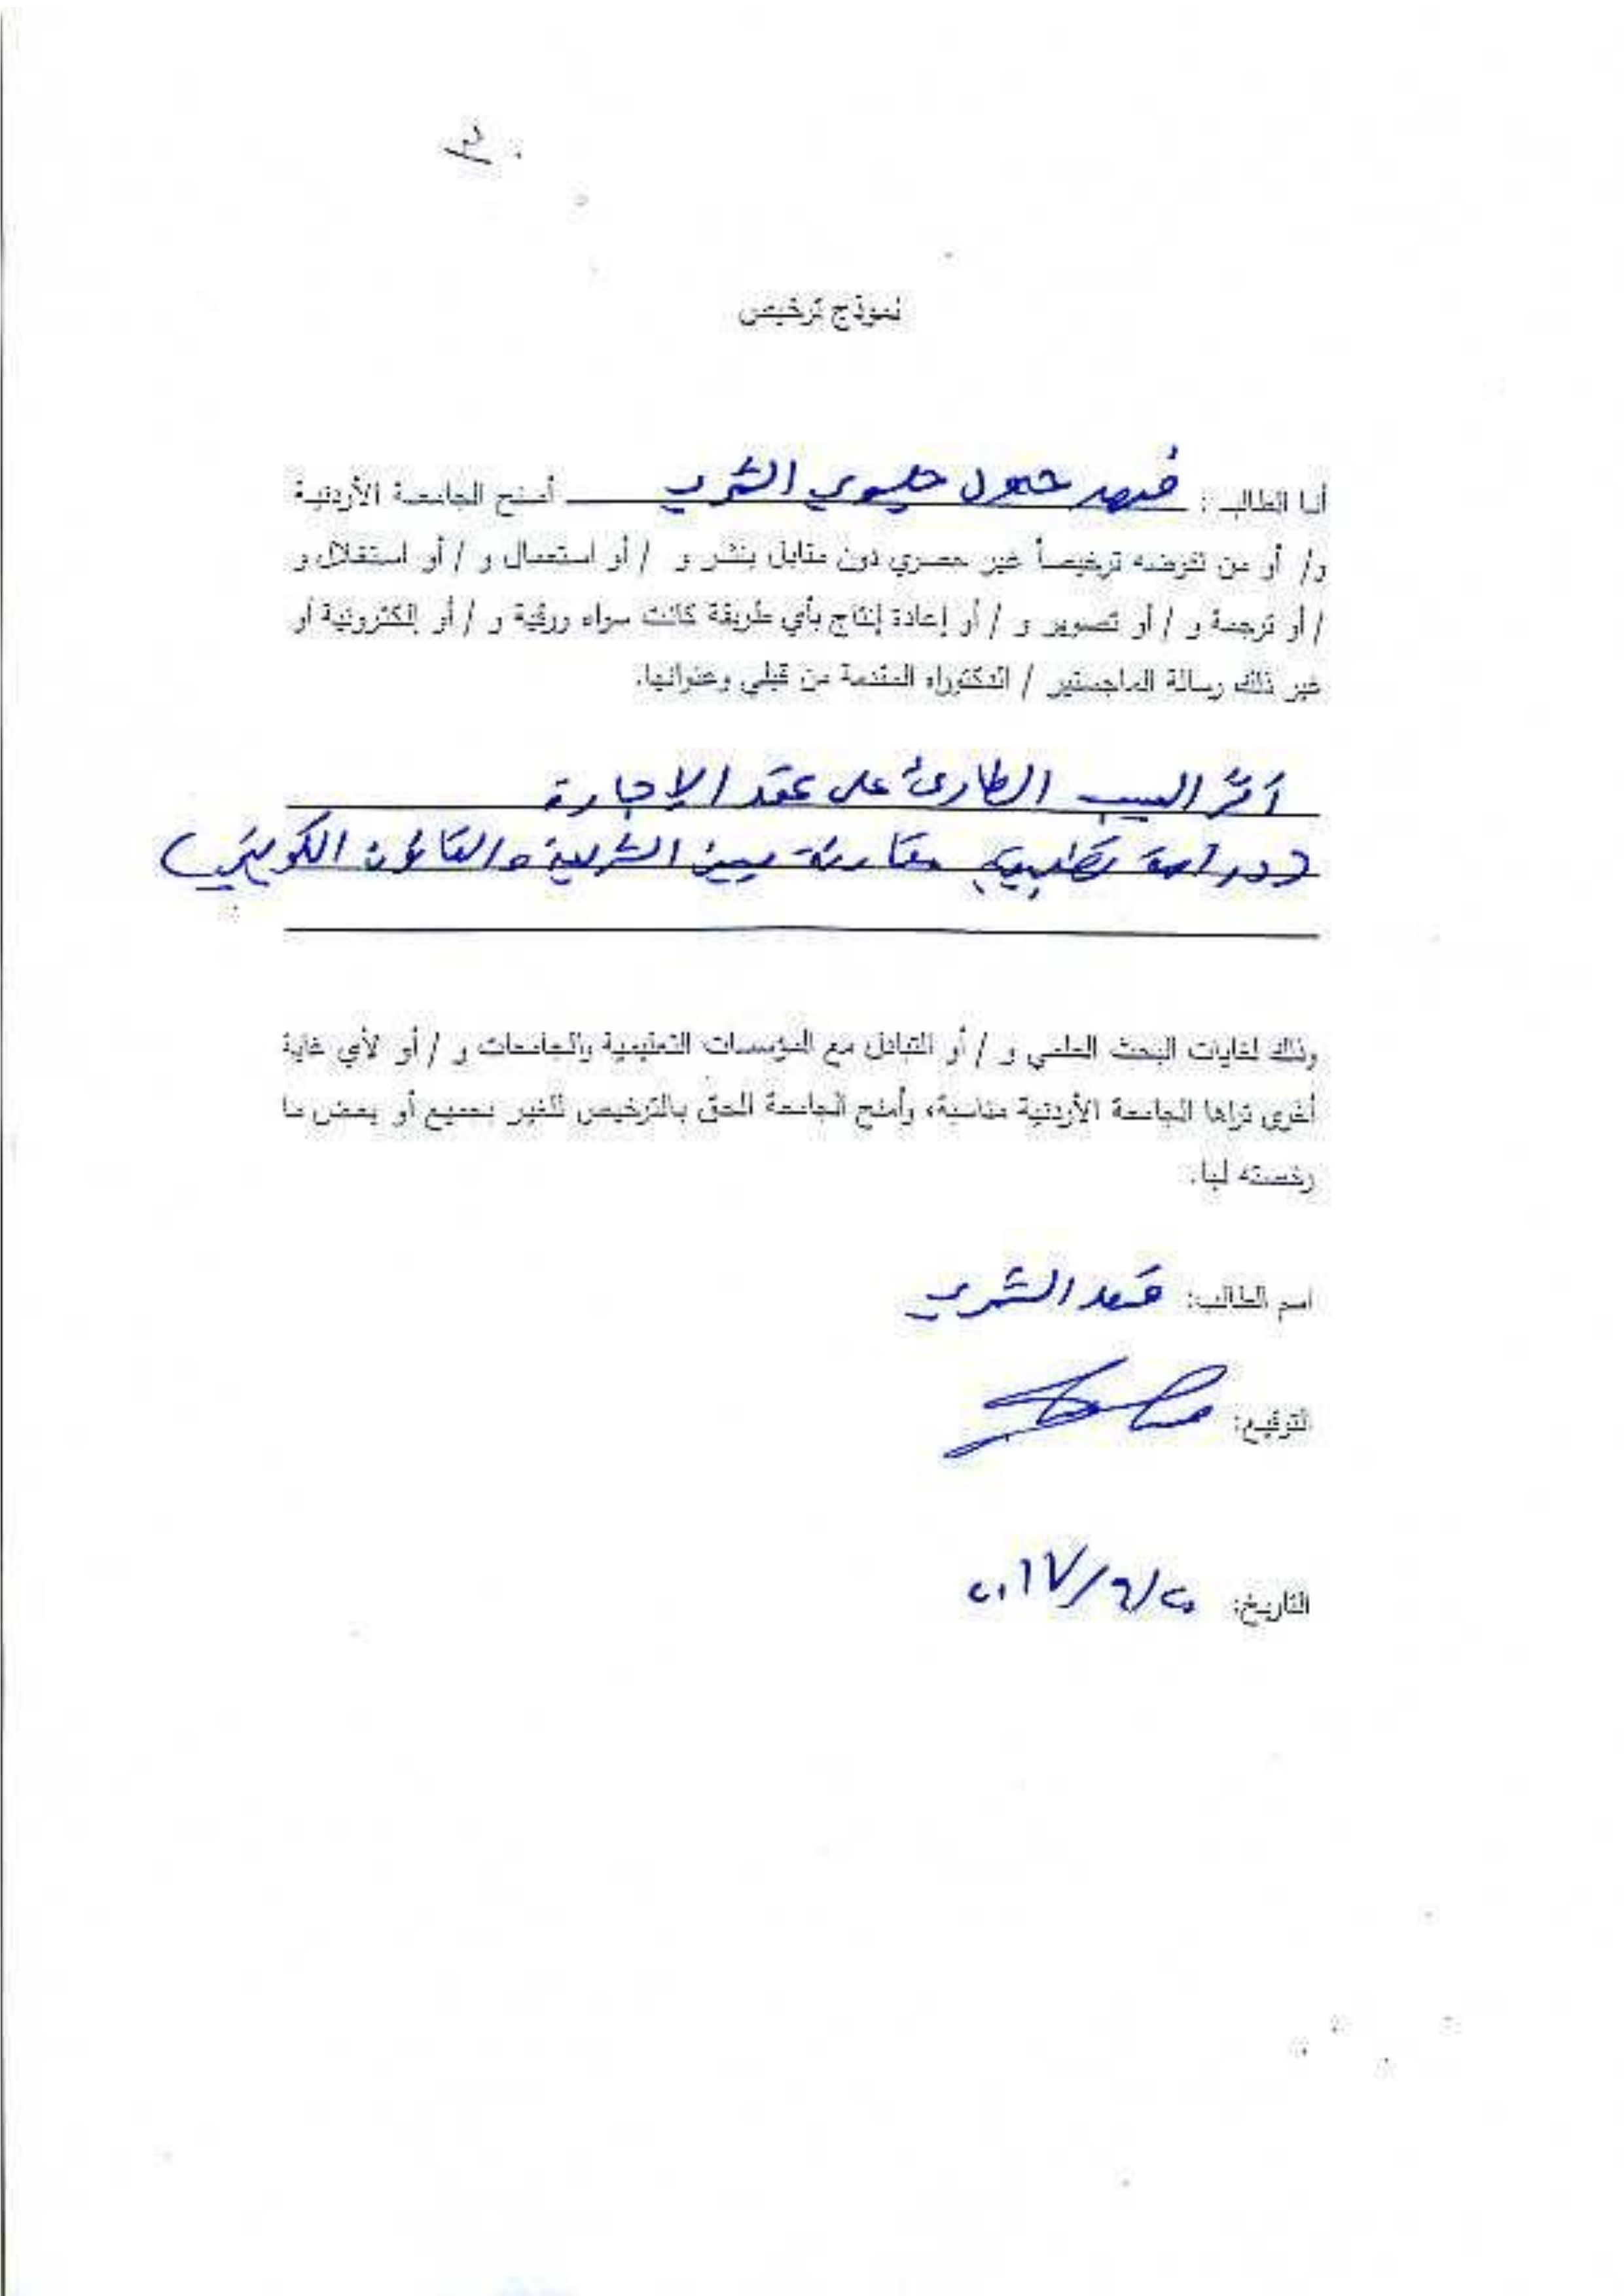 نموذج ترخيص
أنا الطالب: فهد حليوي الشمري أمنح الجامعة الأردنية
و/ أو من تفوضه ترخيصاً غير حصري دون مقابل بنشر و / أو استعمال و / أو استغلال و
/ أو ترجمة و / أو تصوير و / أو إعادة إنتاج بأي طريقة كانت سواء ورقية و / أو إلكترونية أو
غير ذلك رسالة الماجستير / الدكتوراه المقدمة من قبلي وعنوانها.
أثر السبب الطارئ على عقد الإجارة
(دراسة تطبيقية مقارنة بين الشريعة والقانون الكويتي)
وذلك لغايات البحث العلمي و / أو التبادل مع المؤسسات التعليمية والجامعات و / أو لأي غاية
أخرى تراها الجامعة الأردنية مناسبة، وأمنح الجامعة الحق بالترخيص للغير بجميع أو بعض ما
رخصته لها.
اسم الطالب: فهد الشمري
التوقيع:
التاريخ: ٢٠/٦/٢٠١٧